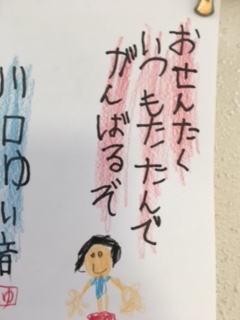 おせんたく
いつもたたんで
がんばるぞ
川口ゆい音
ゆ